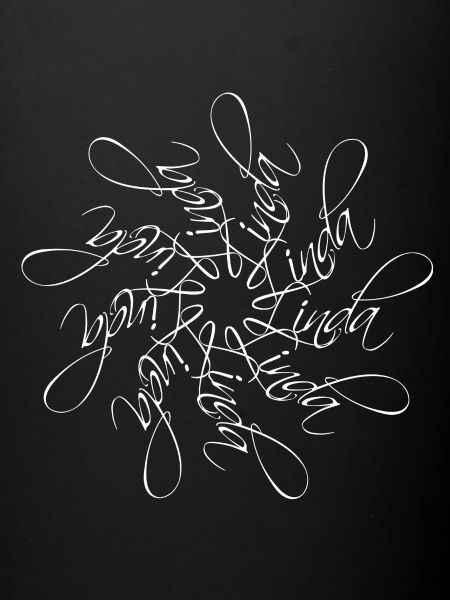 Linda
Linda
Linda
Linda
Linda
Linda
Linda
Linda
Linda